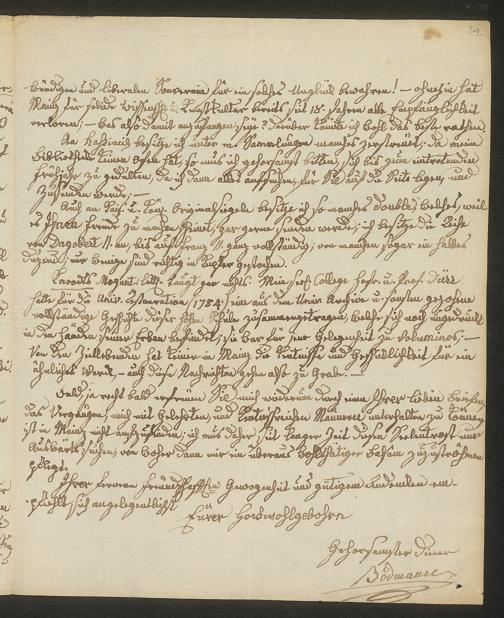 würdigen und liberalen Souverain für ein solches Unglück bewahren! – ohnehin hat
Mainz für solide Wissensch. u. Kunstkultur bereits seit 18. Jahren alle Empfänglichkeit
verloren; – was also damit anzufangen sey? darüber könnte ich wohl das beste rathen,
An Hassiacis besitze ich unter m. Samlungen manches zerstreut; da meine
Bibliothek keinen Ofen hat, so muß ich gehorsamst bitten, sich bis zum eintretenden
Frühjahr zu gedulten, da ich dann alles aufsuchen, für Sie auf die Seite legen und
zusenden werde. –
Auch an Kais. u. Kön. Originalsiegeln besitze ich so manches double, welches, weil
es Ihnen Freude zu machen scheint, gar gerne senden werde; ich besitze die Reihe
von Dagobert II an, bis auf Franz II. ganz vollständig; von manchen sogar ein halbes
Dutzend; nur wenige sind richtig in Kupfer gestochen.
Knodts Mogunt. litt. taugt gar nichts. Mein sel. College Hofr. u. Prof. Dürr
hatte für die Univ. Restauration, 1784. eine aus dem Univ. Archive u. sonsten gezogene
vollständige Geschichte dieser hohen Schule zusammengetragen, welche sich noch ungedruckt
in den Händen seiner Erben befindet; sie war für jene Gelegenheit zu voluminos; –
Von den Zeitlebenden hat keiner in Mainz die Kenntnisse und Geschicklichkeit für ein
ähnliches Werk, – auch diese Nachrichten gehen also zu Grabe. –
bald, ja recht bald erfreuen Sie mich wiederum durch einen Ihrer lieben Briefe,
das Vergnügen, mich mit Gelehrten, und kenntnißreichen Männern unterhalten zu können,
ist in Mainz nicht aufzufinden; ich muß daher seit langer Zeit diesen Seelentrost nur
Auswärts suchen, von woher dann mir ein überaus wohlthätiger zuzuströhmen
pflegt.
Ihrer fernern Freundschafftlichen Gewogenheit und gütigem Andenken em-
pfiehlt sich angelegentlichst
Euer Hochwohlgebohren
Gehorsamster Diener
Bodmann